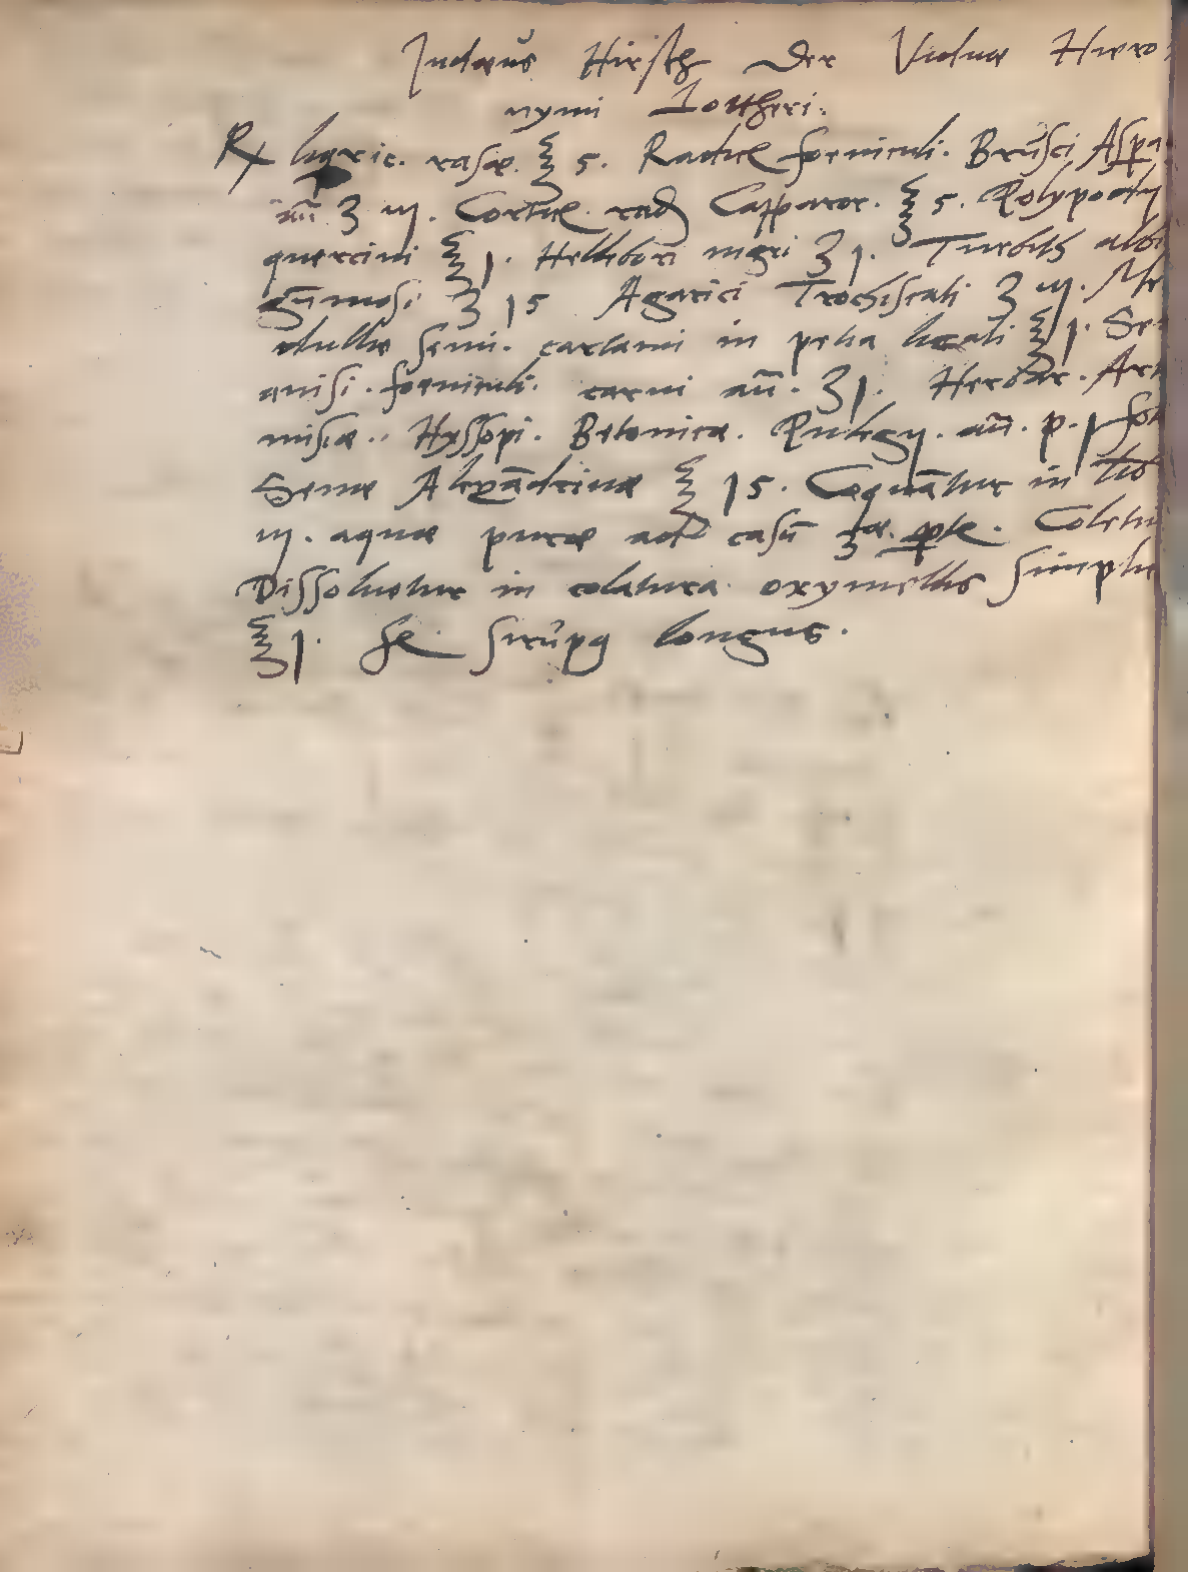 Judæus Hirsch Der Viduæ Hiero
nymi Lottheri.
℞ liqric. rasæ. ℥ s. Radic foeniculi. Brusci Aspa
añ ʒ iij. Cortic. rad Capparor. ℥ s. Polypodij
quercini ℥ j. Hellebori nigri ʒ j. Turbith albi
gūmosi ʒ js Agarici Trochiscati ʒ iij. Me
dullæ semi. cartami in petia ligati ℥ j. Se
anisi. foeniculi. carui añ. ʒ j. Herbar. Art
misiæ. Hyssopi. Betonicæ. Pulegij. añ. p. j fol
Senæ Alexādrinæ ℥ js. Coquātur in lib
iij. aquæ puræ ad casū 3æ. pte. Coletur
Dissoluetur in colatura oxymellis simplic
℥ j. fe sirūpg longus.